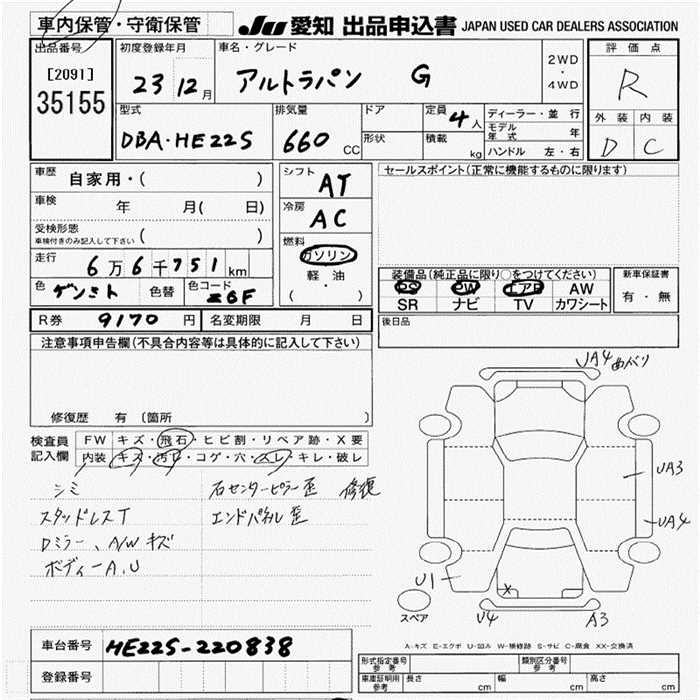 車内保管・守衛保管 JU 愛知 出品申込書 JAPAN USED CAR DEALERS ASSOCIATION
出品番号 初度登録年月 車名・グレード 評価点
[2091] 23 12月 アルトラパン G 2WD・4WD R
35155
型式 排気量 ドア 定員 4人 ディーラー・並行 外装 内装
DBA・HE22S 660 CC 形状 積載 kg モデル年式 年 D C
ハンドル 左・右
車歴 自家用・( ) シフト AT セールスポイント(正常に機能するものに限ります)
車検 年 月( 日) 冷房 AC
受検形態 車検付きのみ記入して下さい ( )
燃料 ガソリン
走行 6万6千751km 軽・油
( )
装備品(純正品に限り○をつけてください) 新車保証書
色 色替 色コード ZGF PS PW エアB AW 有・無
SR ナビ TV カワシート
R券 9170円 名変期限 月 日 後日品
注意事項申告欄(不具合内容等は具体的に記入して下さい)
修復歴 有 〔箇所 〕
検査員記入欄 FW キズ・飛石・ヒビ割・リペア跡・X要
内装 キズ・汚レ・コゲ・穴・スレ・キレ・破レ
シミ 右センターピラー歪 修復
スタッドレスT エンドパネル歪
Dミラー、A/Wキズ
ボディーA、U
UA4 めくり
UA3
UA4
U1
X
U4 A3
スペア
A-キズ E-エクボ U-凹み W-補修跡 S-サビ C-腐食 XX-交換済
車台番号 HE22S-220838
登録番号
形式指定番号 参考 類別区分番号 参考
車庫証明用 参考 長さ cm 幅 cm 高さ cm